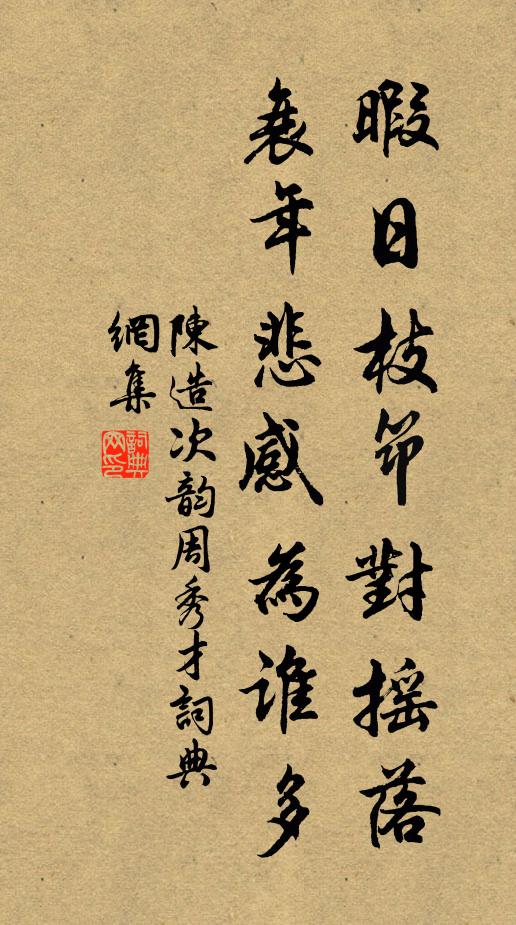 暇日枝筇對摇落
衰年悲感為誰多
陳造次韵周秀才詞典
網集
詞典
网印